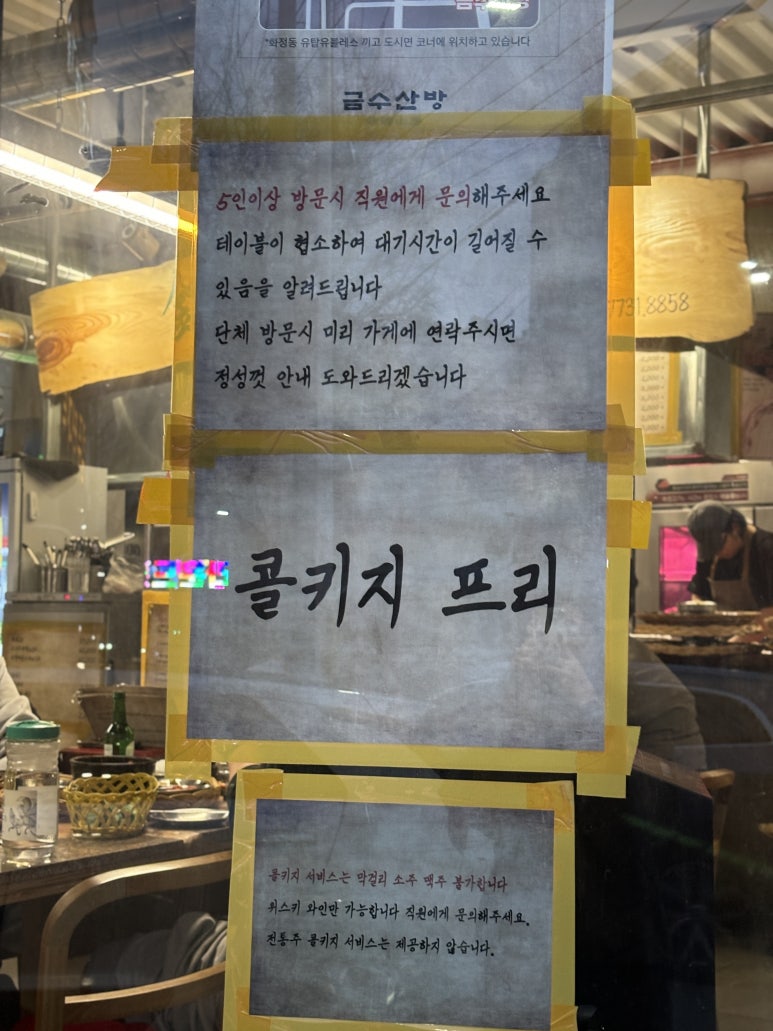 *화정동 유탑유블레스 끼고 도시면 코너에 위치하고 있습니다
금수산방
5인이상 방문시 직원에게 문의해주세요
테이블이 협소하여 대기시간이 길어질 수
있음을 알려드립니다
7731.8858
단체 방문시 미리 가게에 연락주시면
정성껏 안내 도와드리겠습니다
콜키지 프리
콜키지 서비스는 막걸리 소주 맥주 불가합니다
위스키 와인만 가능합니다 직원에게 문의해주세요.
전통주 콜키지 서비스는 제공하지 않습니다.